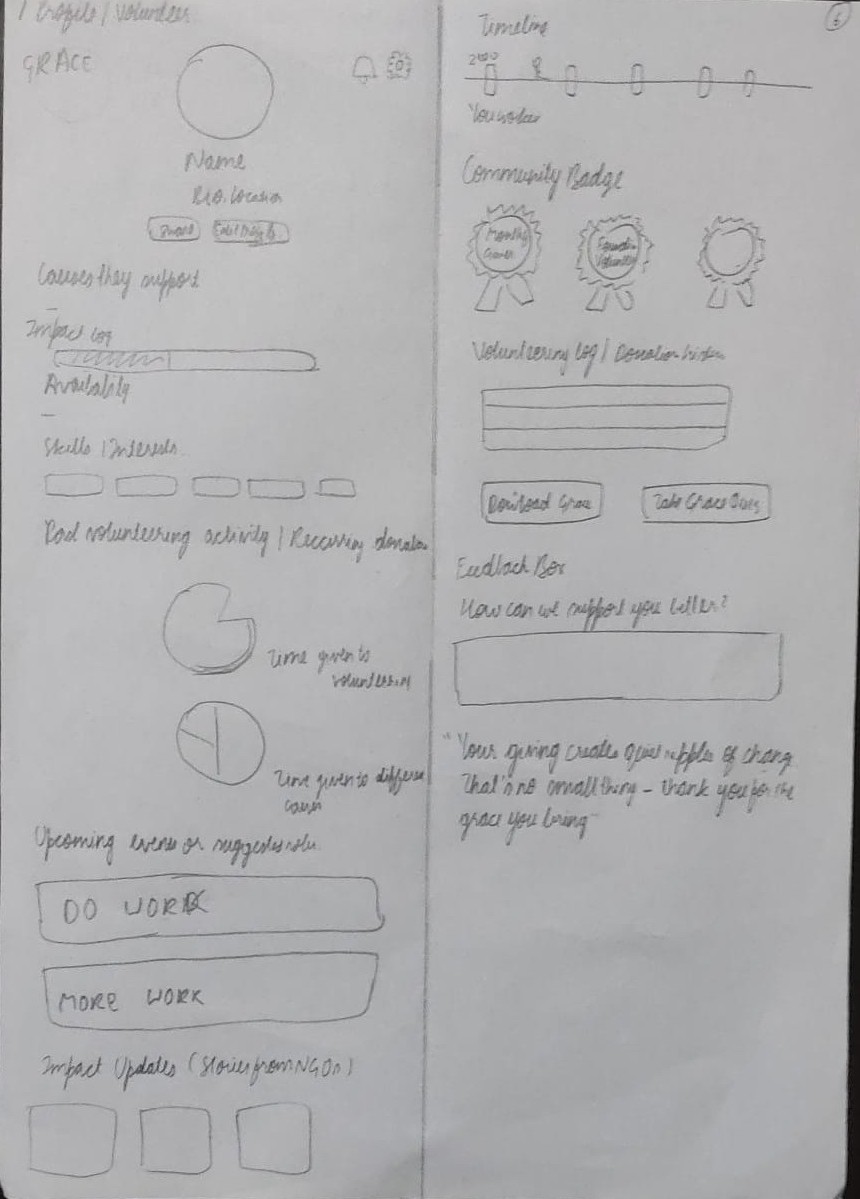 / Profile / Volunteer
GRACE
Name
Bio. Location
Causes they support
Impact log
Availability
Skills / Interests
volunteering activity / Reccuring donation
Time given to
volunteering
Time given to different
causes
Upcoming events or suggested role
DO WORK
MORE WORK
Impact Updates (Stories from NGOs)
6
Timeline
2000
Community Badge
Monthly
Volunteering log / Donation history
Download Grace
Take Grace Quiz
Feedback Box
How can we support you better?
"Your giving creates quiet ripples of change
That's no small thing - thank you for the
grace you bring"